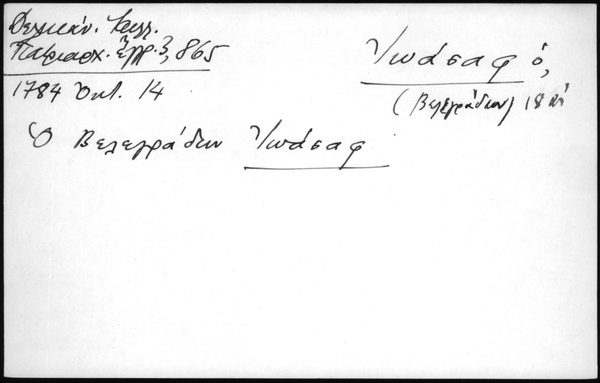 Δελικάν. Καλλ.
Πατριαρχ. Ἔγγρ. 3, 865
1784 Ὀκτ. 14
Ἰωάσαφ ὁ,
(Βελεγράδων) 18 αἰ
Ὁ Βελεγράδων Ἰωάσαφ